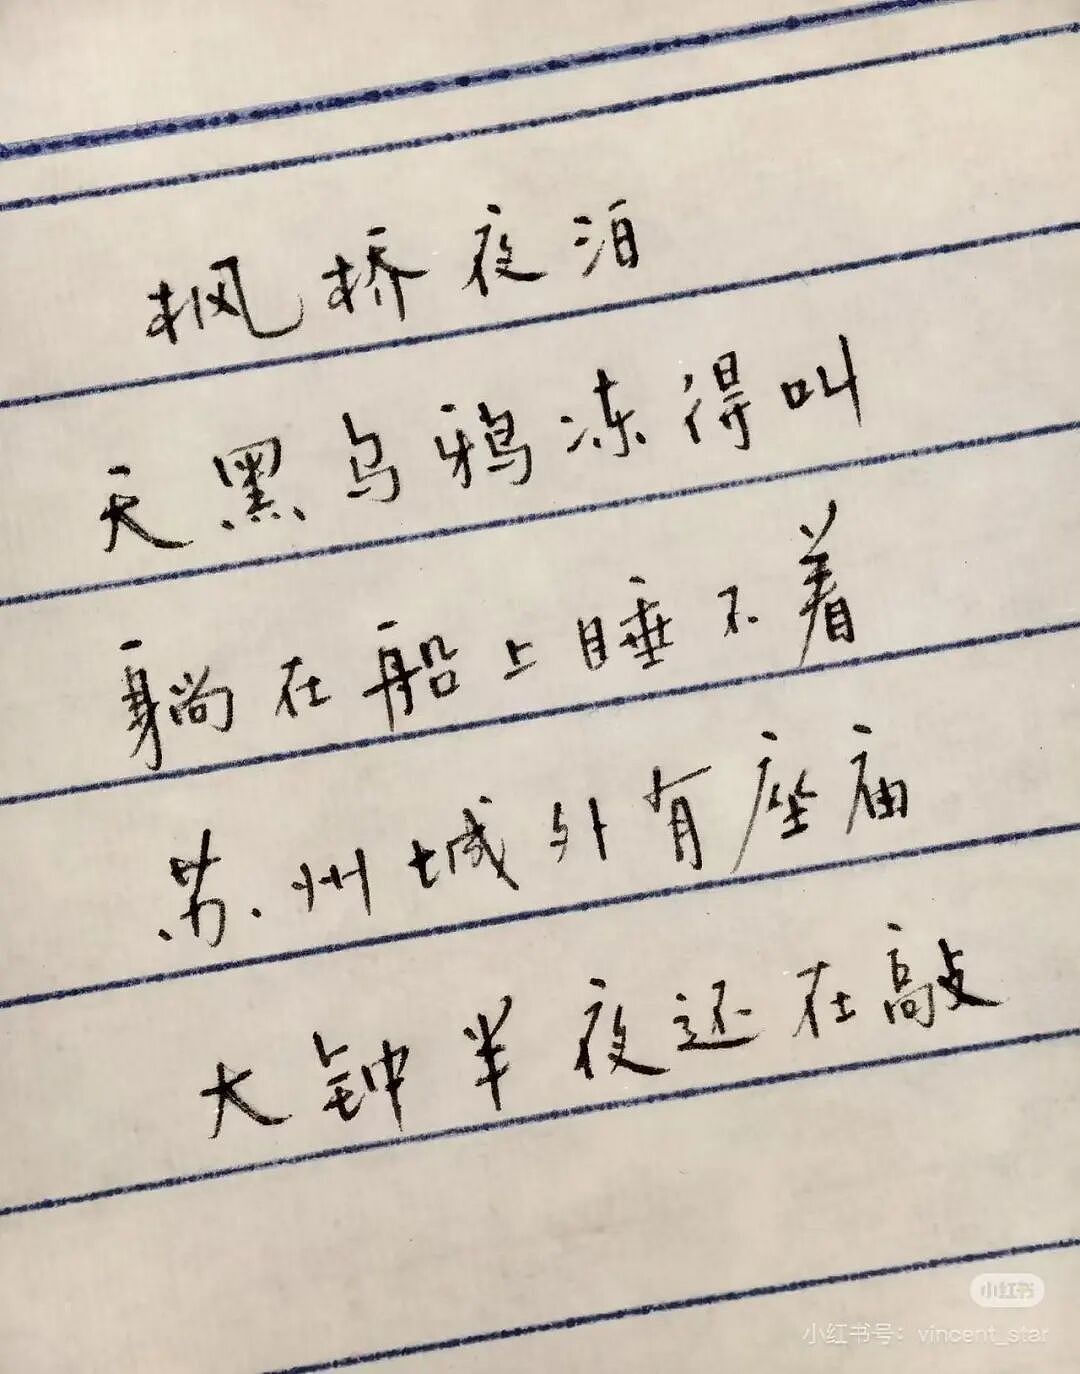 枫桥夜泊
天黑乌鸦冻得叫
躺在船上睡不着
苏州城外有座庙
大钟半夜还在敲
小红书
小红书号：vincent_star